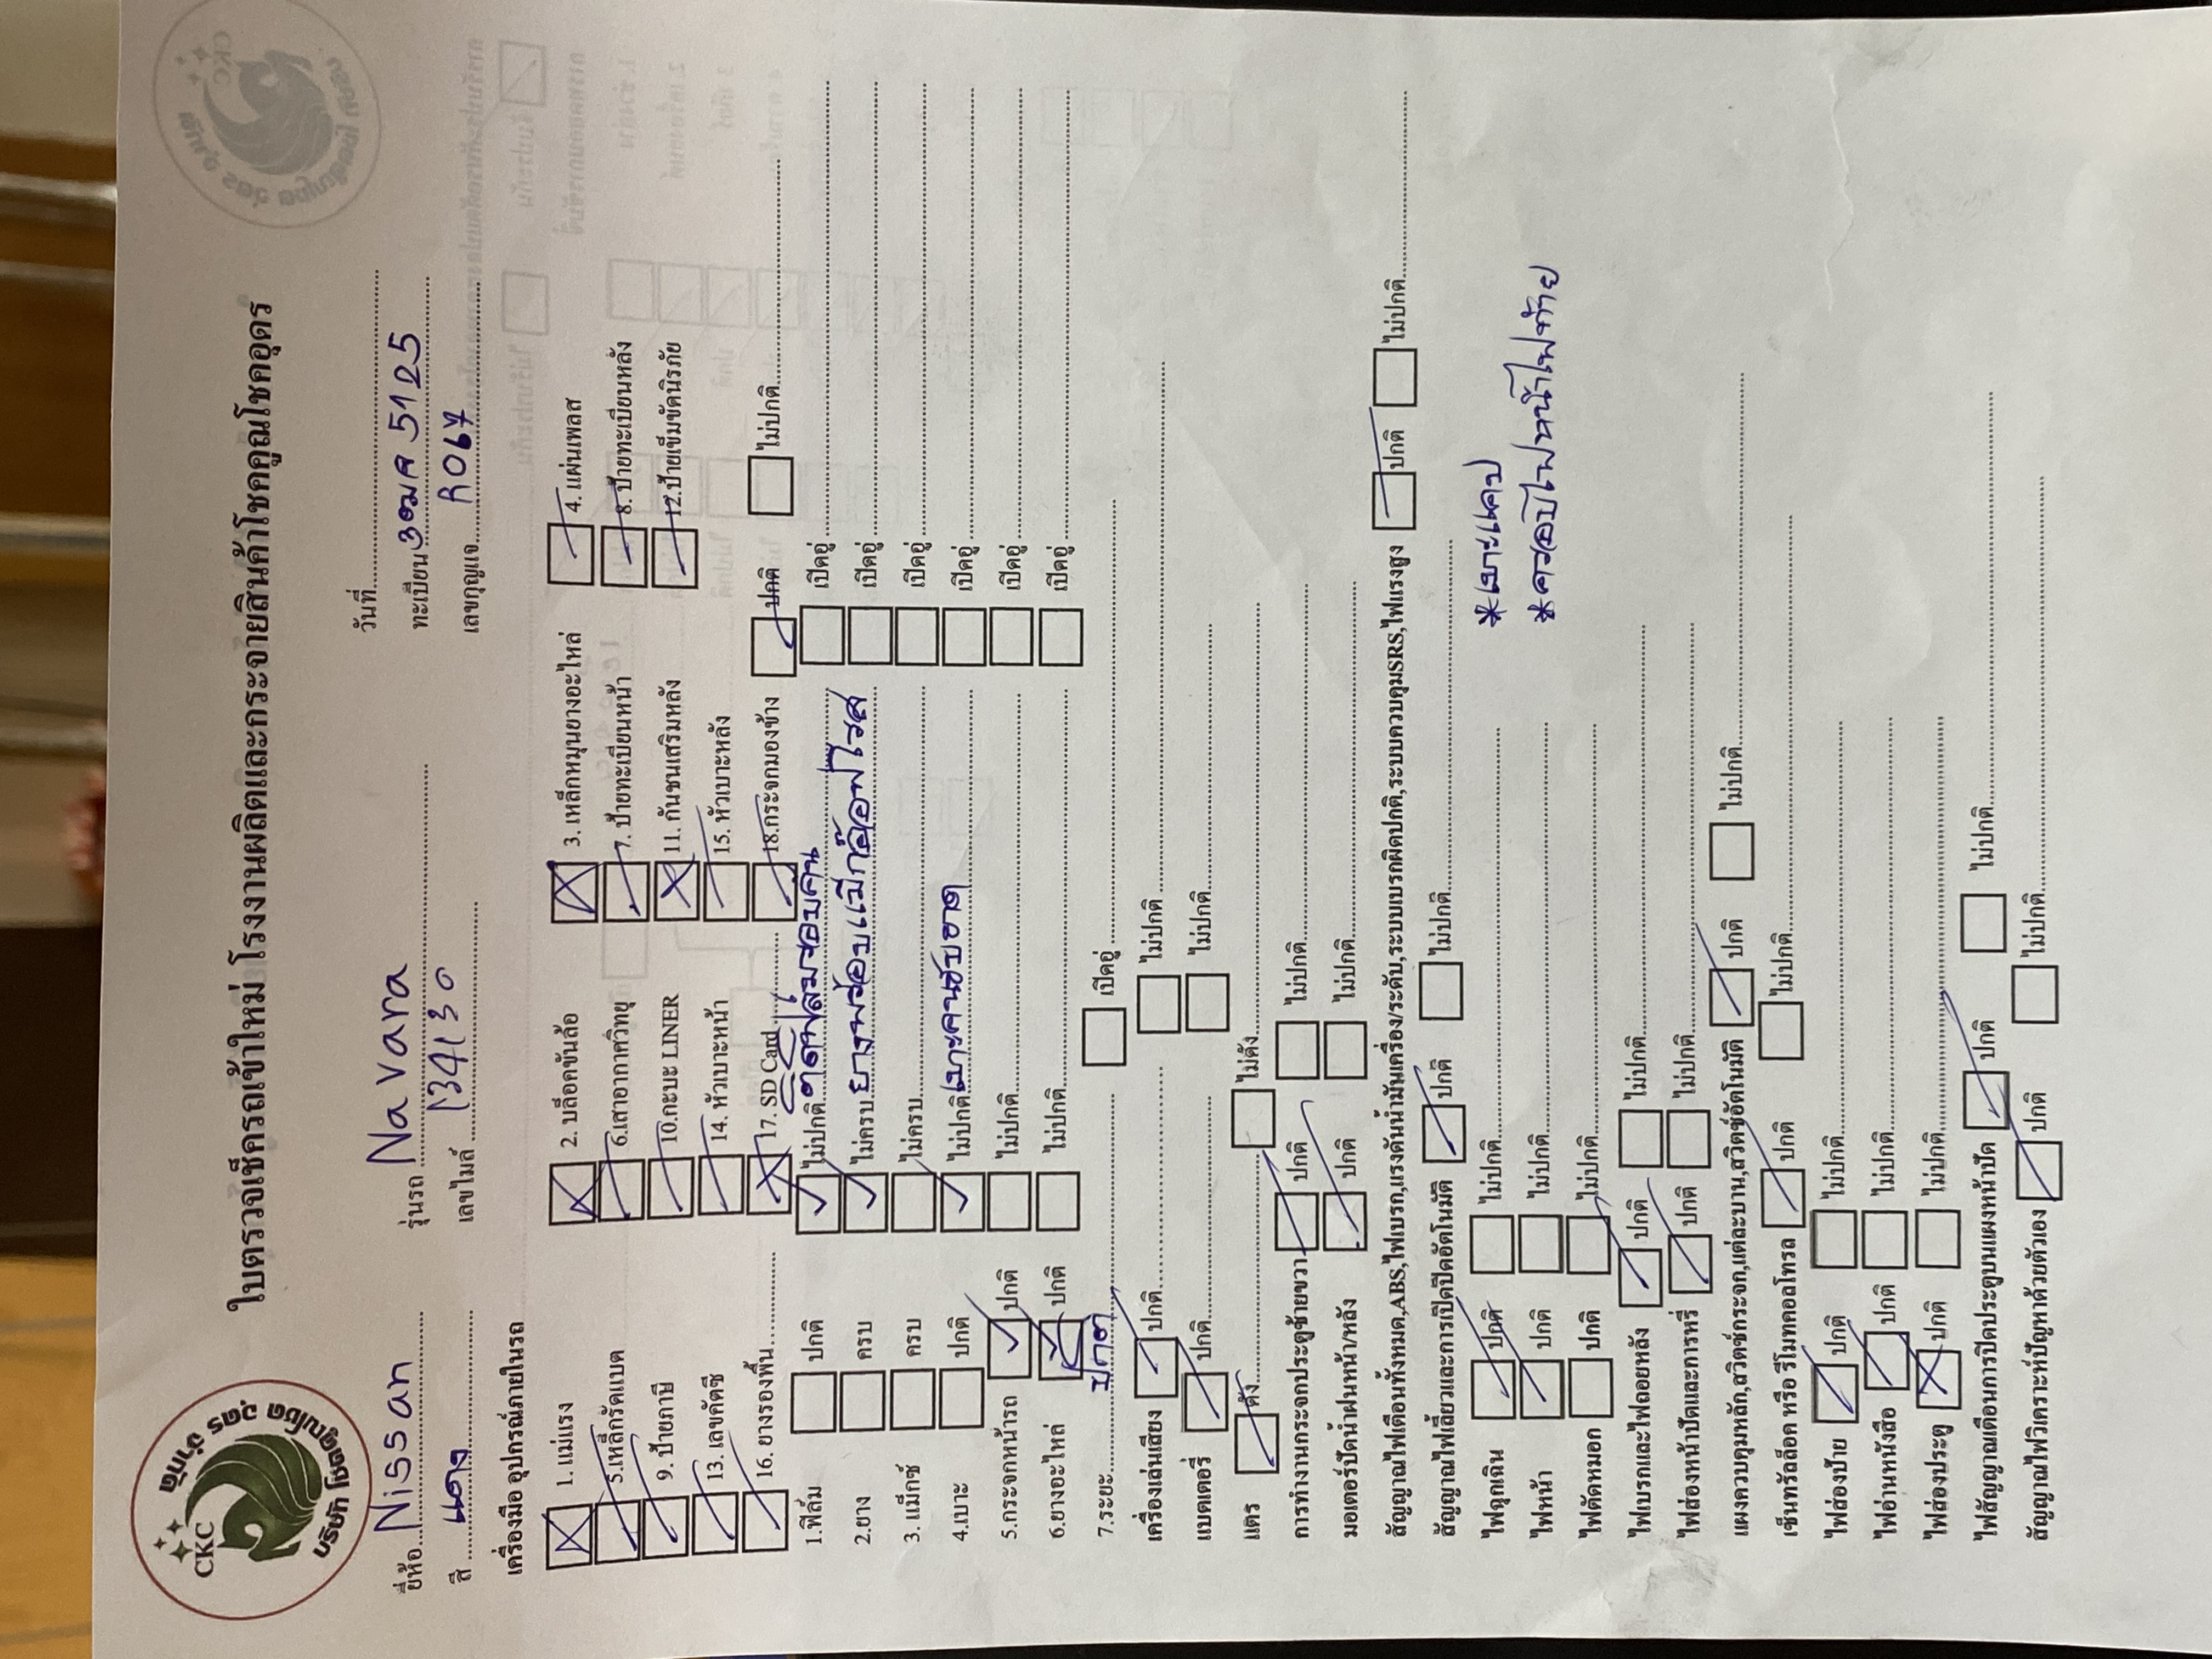 CKC
บริษัท โชคคูณโชค อุดร จำกัด
ใบตรวจเช็ครถเข้าใหม่ โรงงานผลิตและกระจายสินค้าโชคคูณโชคอุดร
วันที่
ยี่ห้อ Nissan รุ่นรถ Navara ทะเบียน 3ฒศ 5125
สี แดง เลขไมล์ 134130 เลขกุญแจ R067
เครื่องมือ อุปกรณ์ภายในรถ
1. แม่แรง 2. บล็อคขันล้อ 3. เหล็กหมุนยางอะไหล่ 4. แผ่นเพลส
5.เหล็กรัดแบต 6.เสาอากาศวิทยุ 7. ป้ายทะเบียนหน้า 8. ป้ายทะเบียนหลัง
9. ป้ายภาษี 10.กะบะ LINER 11. กันชนเสริมหลัง 12.ป้ายเข็มขัดนิรภัย
13. เลขคัตซี 14. หัวเบาะหน้า 15. หัวเบาะหลัง
16. ยางรองพื้น 17. SD Card 18.กระจกมองข้าง ปกติ ไม่ปกติ
1.ฟิล์ม ปกติ ไม่ปกติ เปิดอยู่
2.ยาง ครบ ไม่ครบ ยางพร้อมแม็กอ๊อฟโรส เปิดอยู่
3. แม็กซ์ ครบ ไม่ครบ เปิดอยู่
4.เบาะ ปกติ ไม่ปกติ เบาะคนขับขาด เปิดอยู่
5.กระจกหน้ารถ ปกติ ไม่ปกติ เปิดอยู่
6.ยางอะไหล่ ปกติ ไม่ปกติ เปิดอยู่
7.ระยะ ปกติ เปิดอยู่
เครื่องเล่นเสียง ปกติ ไม่ปกติ
แบตเตอรี่ ปกติ ไม่ปกติ
แตร ดัง ไม่ดัง
การทำงานกระจกประตูซ้ายขวา ปกติ ไม่ปกติ
มอเตอร์ปัดน้ำฝนหน้า/หลัง ปกติ ไม่ปกติ
สัญญาณไฟเตือนทั้งหมด,ABS,ไฟเบรก,แรงดันน้ำมันเครื่อง/ระดับ,ระบบเบรกผิดปกติ,ระบบควบคุมSRS,ไฟแรงสูง ปกติ ไม่ปกติ
สัญญาณไฟเลี้ยวและการเปิดปิดอัตโนมัติ ปกติ ไม่ปกติ
ไฟฉุกเฉิน ปกติ ไม่ปกติ *เบาะแคป
ไฟหน้า ปกติ ไม่ปกติ *ครอบไฟหน้าไฟท้าย
ไฟตัดหมอก ปกติ ไม่ปกติ
ไฟเบรกและไฟถอยหลัง ปกติ ไม่ปกติ
ไฟส่องหน้าปัดและการหรี่ ปกติ ไม่ปกติ
แผงควบคุมหลัก,สวิตซ์กระจก,แต่ละบาน,สวิตช์อัตโนมัติ ปกติ ไม่ปกติ
เซ็นทรัลล็อค หรือ รีโมทคอลโทรล ปกติ ไม่ปกติ
ไฟส่องป้าย ปกติ ไม่ปกติ
ไฟอ่านหนังสือ ปกติ ไม่ปกติ
ไฟส่องประตู ปกติ ไม่ปกติ
ไฟสัญญาณเตือนการปิดประตูบนแผงหน้าปัด ปกติ ไม่ปกติ
สัญญาณไฟวิเคราะห์ปัญหาด้วยตัวเอง ปกติ ไม่ปกติ